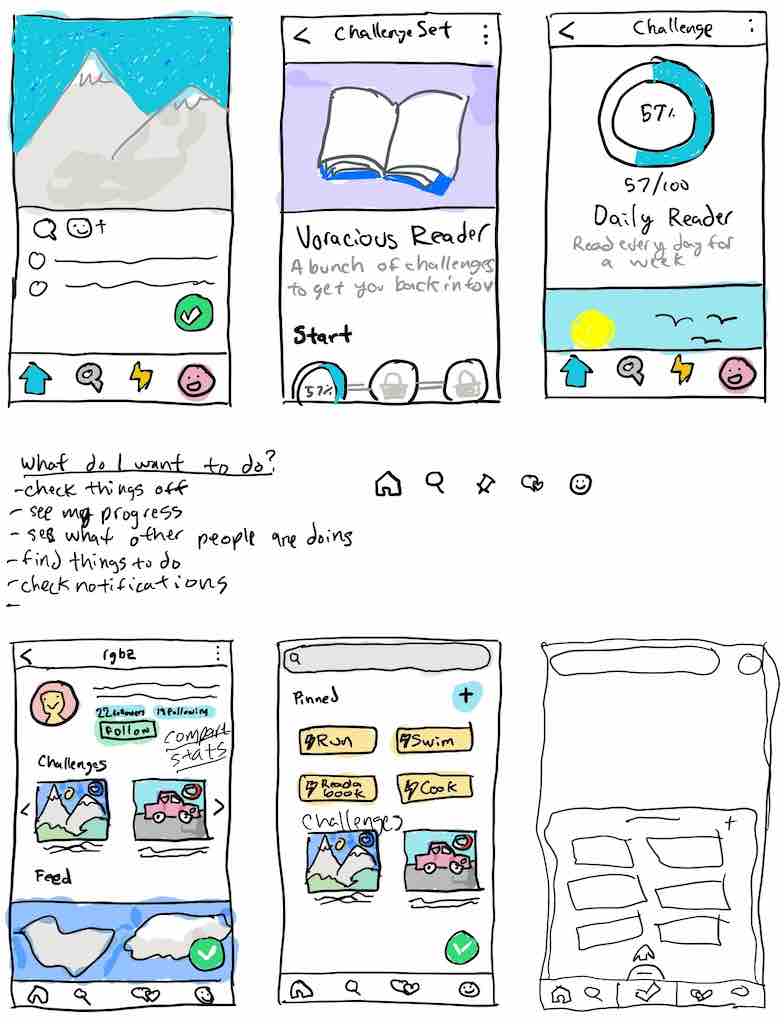 Challenge Set
Voracious Reader
A bunch of challenges
to get you back into
Start
57%
Challenge
57%
57/100
Daily Reader
Read every day for
a week
What do I want to do?
-check things off
- see my progress
- see what other people are doing
- find things to do
- check notifications
-
rgbz
22 followers 19 following
Follow
compare
stats
Challenges
Feed
Pinned
+
Run
Swim
Read a
book
Cook
Challenges
+